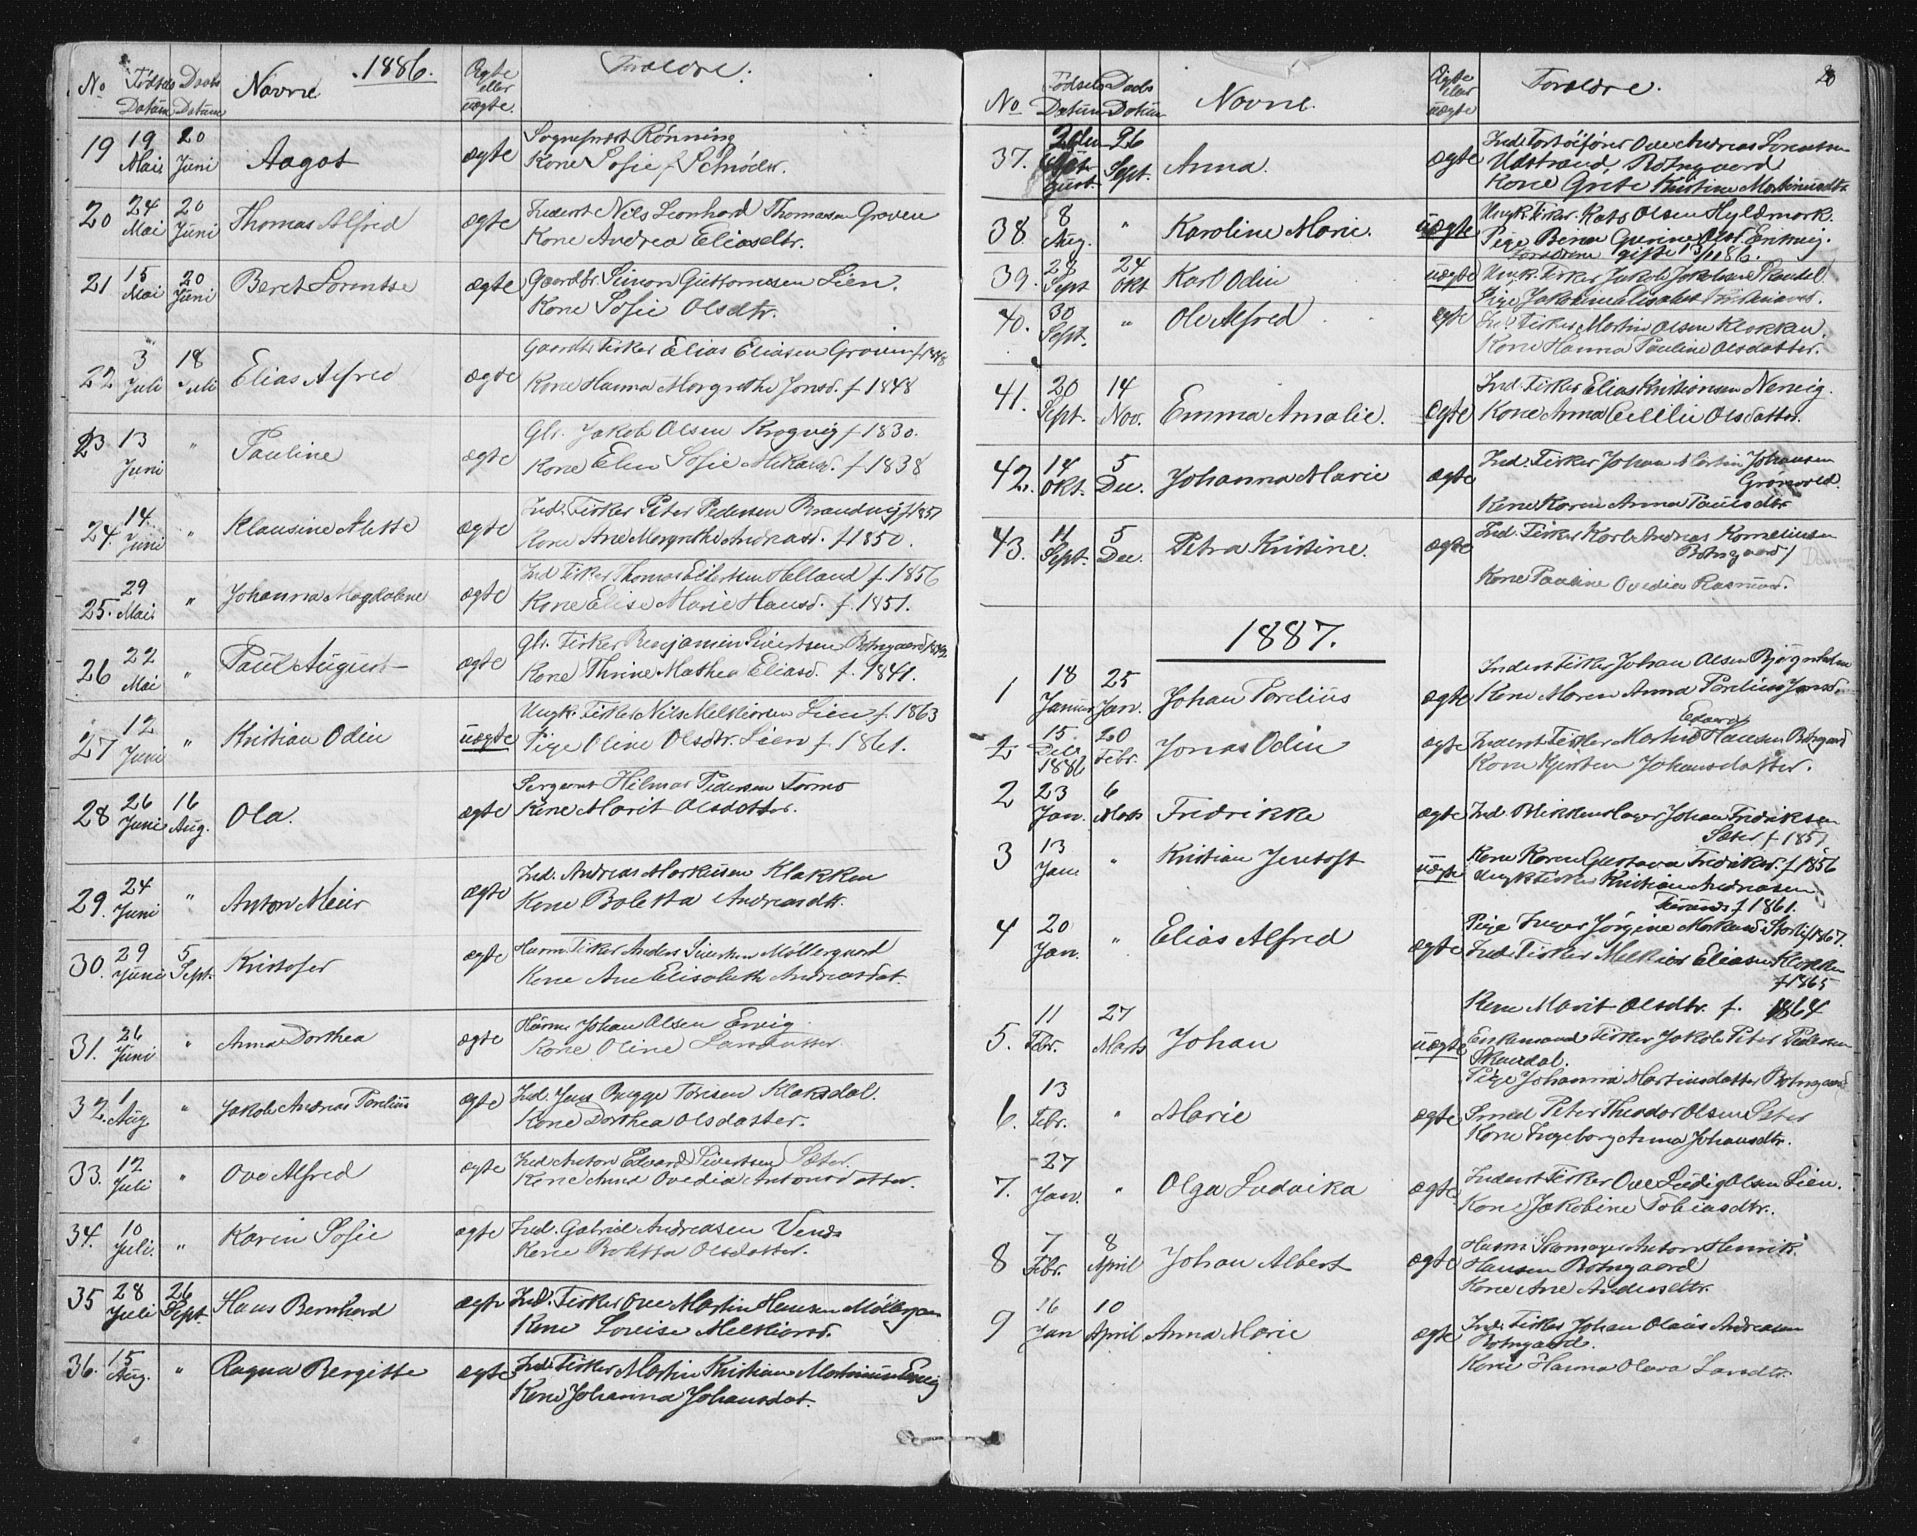 1886.
No Fødsels Datum Daabs Datum Navne Ægte eller uægte. Forældre.
19 19 Mai 20 Juni Aagot ægte Sogneprest Rönning
Kone Sofie f. Schrøder.
20 24 Mai 20 Juni Thomas Alfred ægte Inderst Nils Leonhard Thomassen Groven
Kone Andrea Eliasdtr.
21 15 Mai 20 Juni Beret Lorntse ægte Gaardbr. Simon Guttormsen Lien.
Kone Sofie Olsdtr.
22 3 Juli 18 Juli Elias Alfred ægte Gaardbr. Fisker Elias Eliasen Groven f. 1848
Kone Hanna Margrethe Jonsd. f. 1848
23 13 Juni " Pauline ægte Gbr. Jakob Olsen Krogvig f. 1830.
Kone Elen Sofie Mikaelsd. f. 1838
24. 14. Juni " Klausine Mette ægte Ind. Fisker Peter Pedersen Brandvig f. 1851
Kone Ane Margrethe Andreasd. f. 1850.
25. 29 Mai " Johanna Magdalene ægte Ind. Fisker Thomas Eilertsen Helland f. 1856
Kone Elise Marie Hansd. f. 1851.
26 22 Mai " Paul August ægte Gbr. Fisker Benjamin Sivertsen Botngaard 1842
Kone Thrine Mathea Eliasd. f. 1841.
27 12 Juni " Kristian Odin uægte Ungk. Fisker Nils Melkiorsen Lien f. 1863
Pige Oline Olsdtr. Lien f. 1861.
28 26 Juni 16 Aug. Ola. ægte Sergeant Hilmar Pedersen Tormo
Kone Marit Olsdatter.
29. 24 Juni " Anton Meier ægte Ind. Andreas Markusen Klakken
Kone Boletta Andreasdtr.
30. 29 Juni 5 Sept. Kristofer ægte Husm. Fisker Anders Sivertsen Möllergaard
Kone Ane Elisabeth Andreasdat.
31. 26 Juni " Anna Dorthea ægte Husm. Johan Olsen Ervig.
Kone Oline Larsdatter.
32. 1 Aug. " Jakob Andreas Pareliüs ægte Ind. Jens Bugge Tøresen Klaksdal.
Kone Dorthea Olsdatter.
33. 12 Juli " Ove Alfred ægte Ind. Anton Edvard Sivertsen Sæter.
Kone Anna Ovedia Antonsdatter.
34. 10 Juli. " Karen Sofie ægte Ind. Gabriel Andreasen Vends
Kone Boletta Olsdatter.
35 28 Juli 26 Sept. Hans Bernhard ægte Ind. Fisker Ove Martin Hansen Möllergaa
Kone Lovise Melkiorsd.
36. 15 Aug. " Ragna Bergitte ægte Ind. Fisker Martin Kristian Martinus Ervig
Kone Johanna Johansdat.
20
No Fødsels Datum Daabs Datum Navne. Ægte eller uægte Forældre.
37. August 26 Sept. Anna. ægte Ind. Fartöiförer Ove Andreas Lorentsen
Udstrand, Botngaard
Kone Grete Kristine Martinusdtr.
38. 8 Aug. " Karoline Marie. uægte Ungk. Fisker Mats Olsen Hyldmork.
Pige Berna Gurine Olsd. Ervig.
Forældrene gifte
39. 23 Sept 24 Okt Karl Odin uægte Ungk. Fisker Jakob Jakobsen
Pige Jakobine Elisabet
40. 30 Sept. " Ole Alfred ægte Ind. Fisker Martin Olsen Klakken.
Kone Hanna Pauline Olsdatter.
41. 20 Sept. 14 Nov. Emma Amalie. Ægte Ind. Fisker Elias Kristiansen Nervig.
Kone Anna Cecilie Olsdatter.
42. 14 Okt. 5 Dec. Johanna Marie ægte Ind. Fisker Johan Martin Johansen
Gronvold.
Kone Karen Anna Paulsdtr.
43. 11 Sept. 5 Dec. Petra Kristine. ægte Ind. Fisker Karl Andreas Korneliusen
Botngaard
Kone Pauline Ovedia Rasmusd.
1887.
1 18 Januar 25 Jan. Johan Pareliüs ægte Inderst Fisker Johan Olsen Bjørgnholm
Kone Maren Anna Pareliüs Jonsd.
2 15. Dec. 1886 20 Febr. Jonas Odin ægte Inderst Fisker Martin Edvard Hansen Botngaard
Kone Kjersten Johansdatter.
2 23 Jan. 6 Marts Fredrikke ægte Ind. Blikkenslager Johan Fredriksen
Sæter f. 1857
Kone Karen Gustava Fredriksd. f. 1856
3 13 Jan " Kristian Jentoft uægte Ungk. Fisker Kristian Andreasen
Strand f. 1861.
Pige Inger Jörgine f. 1867.
4 20 Jan. " Elias Alfred ægte Ind. Fisker Melkior Eliasen Klakken
f. 1865
Kone Marit Olsdtr. f. 1864
5. 11 Febr. 27 Marts Johan uægte Enkemand Fisker Jakob Peter Pedersen
Skavdal.
Pige Johanna Martinusdatter Botngaard
6. 13 Febr. " Marie ægte Smed Peter Theodor Olsen Sæter
Kone Ingeborg Anna Johansdtr.
7. 27 Jan. " Olga Ludvika ægte Inderst Fisker Ove Ludvig Olsen Lien.
Kone Jakobine Tobiasdtr.
8 7 Febr. 8 April Johan Albert ægte Husm. Skomager Anton Henrik
Hansen Botngaard
Kone Ane Andersdtr.
9 26 Jan 10 April Anna Marie ægte Ind. Fisker Johan Olaüs Andreasen
Botngaard.
Kone Hanna Olava Larsdtr.